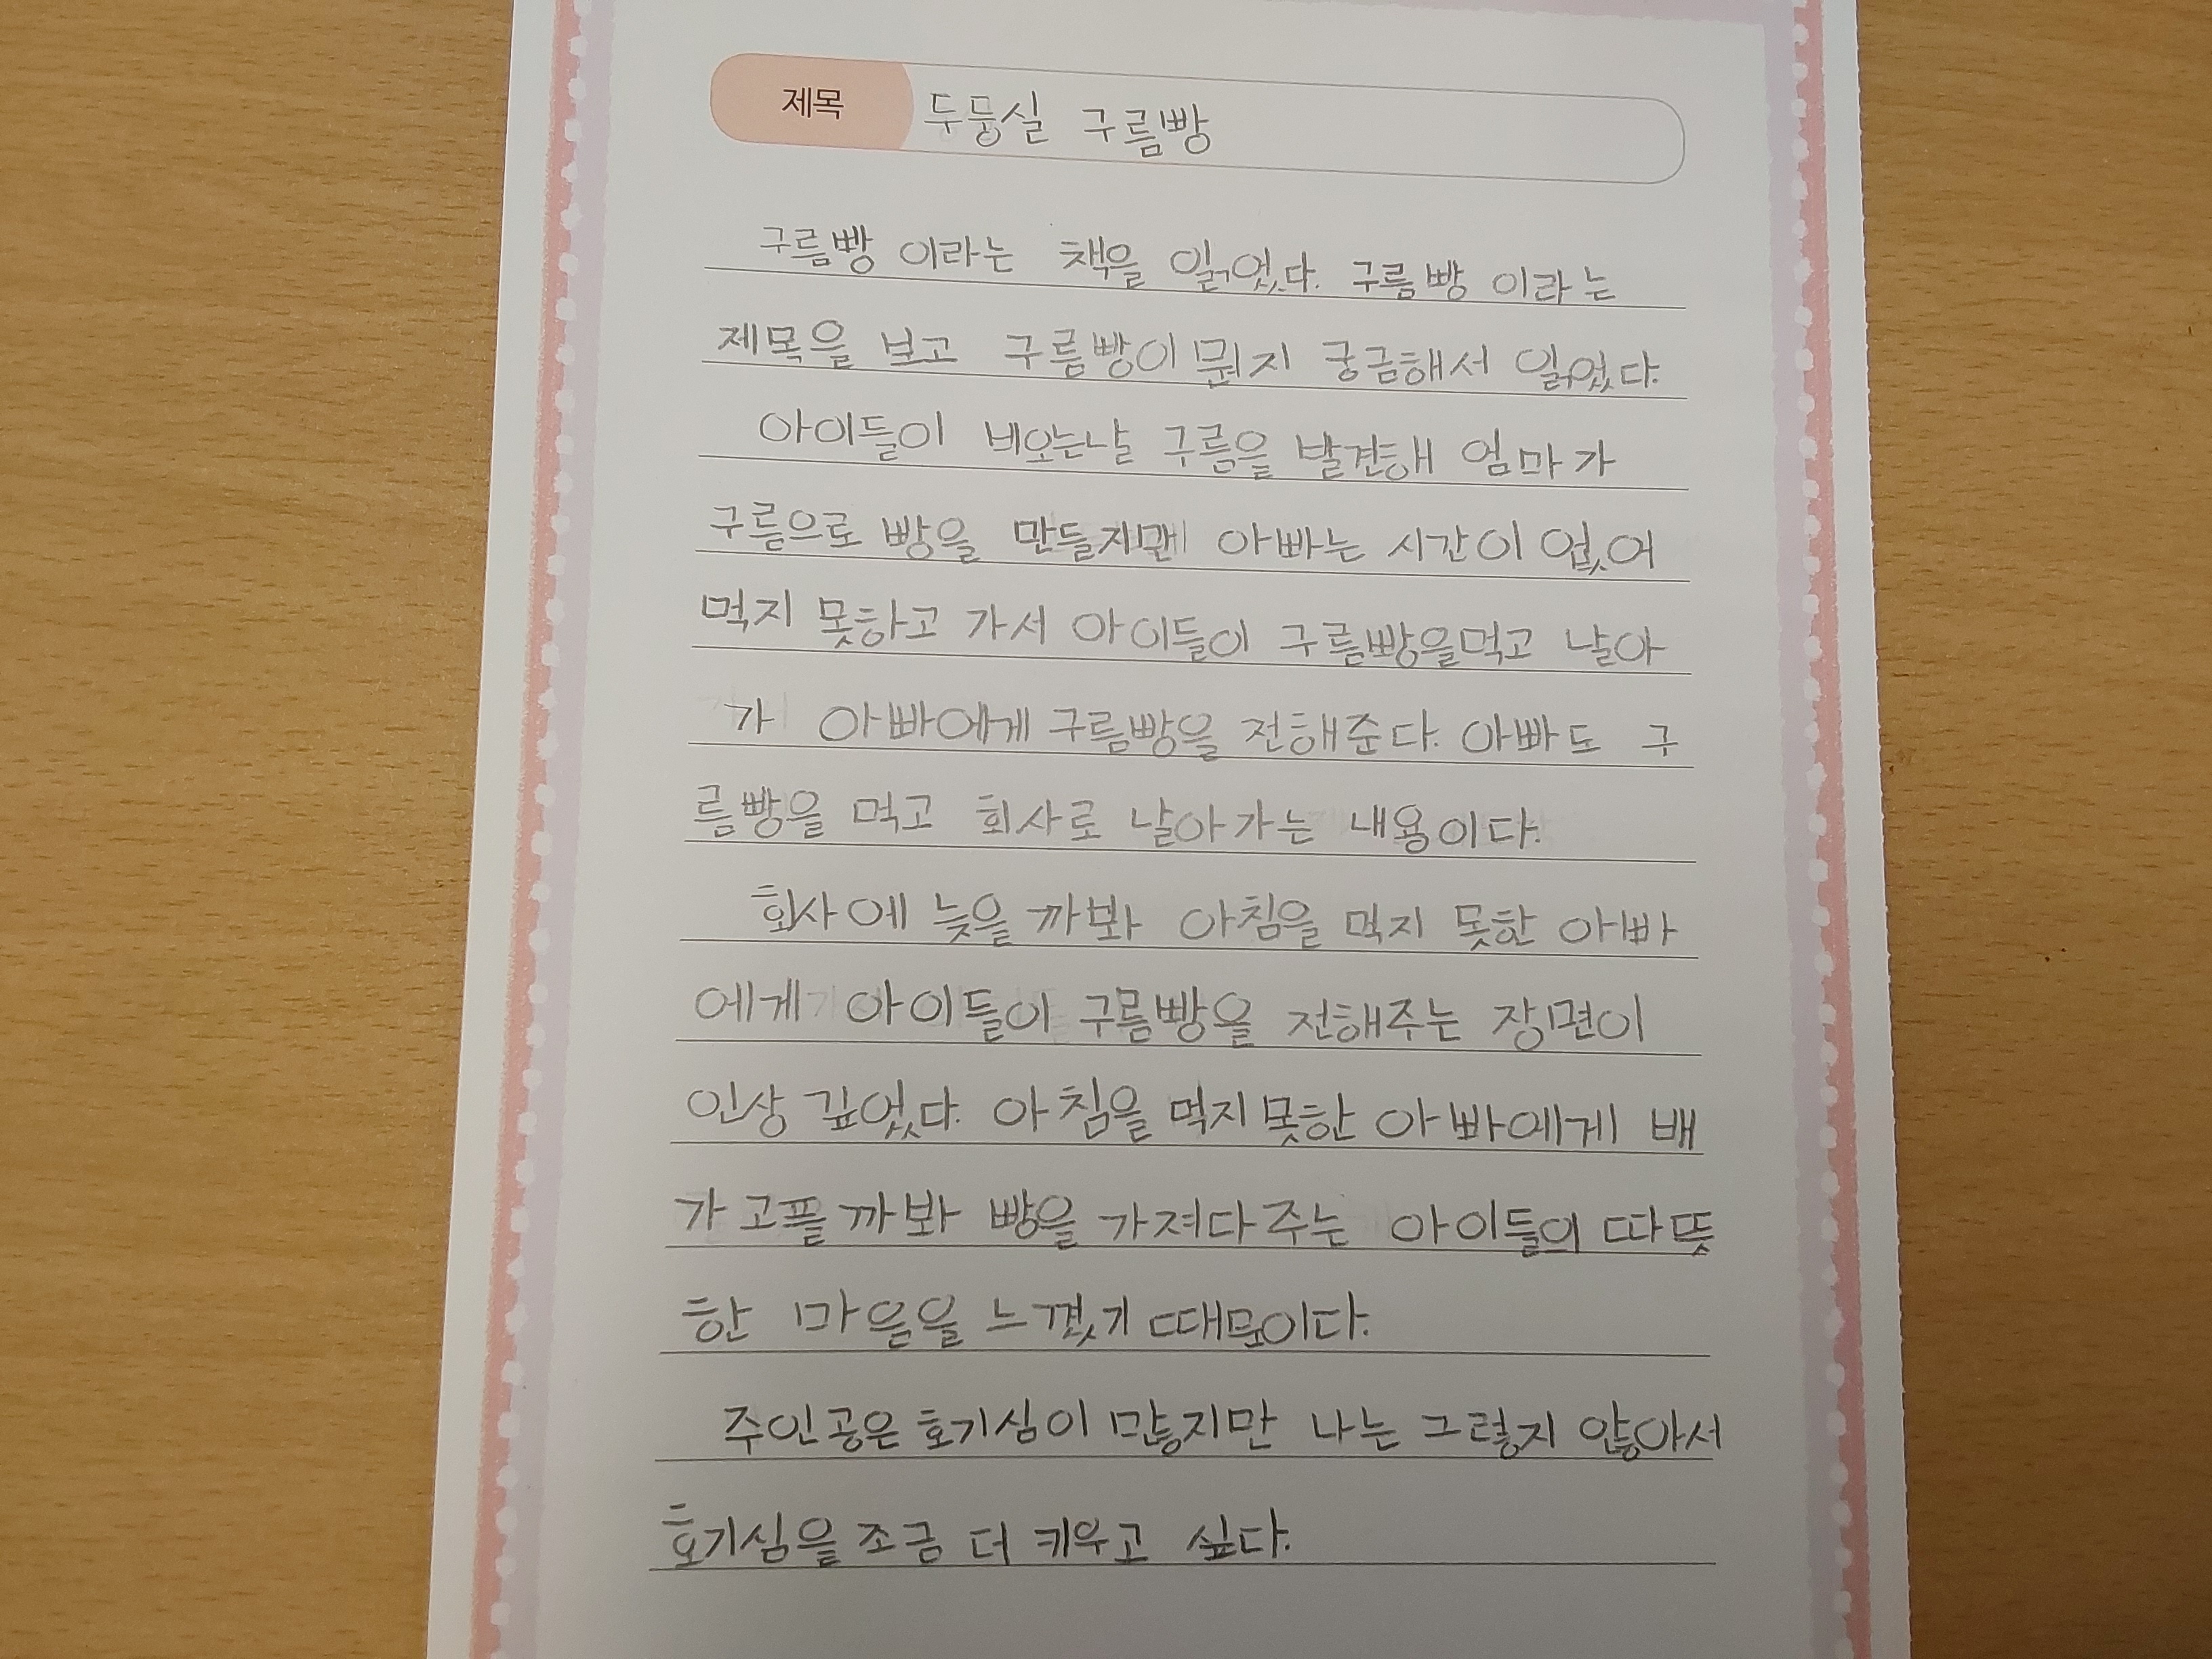 제목 두둥실 구름빵
구름빵 이라는 책을 읽었다. 구름빵 이라는
제목을 보고 구름빵이 뭔지 궁금해서 읽었다.
아이들이 비오는날 구름을 발견해 엄마가
구름으로 빵을 만들지만 아빠는 시간이 없어
먹지 못하고 가서 아이들이 구름빵을먹고 날아
가 아빠에게 구름빵을 전해준다. 아빠도 구
름빵을 먹고 회사로 날아가는 내용이다.
회사에 늦을까봐 아침을 먹지 못한 아빠
에게 아이들이 구름빵을 전해주는 장면이
인상 깊었다. 아침을 먹지못한 아빠에게 배
가고플까봐 빵을 가져다주는 아이들의 따뜻
한 마음을 느꼈기 때문이다.
주인공은 호기심이 많지만 나는 그렇지 않아서
호기심을 조금 더 키우고 싶다.